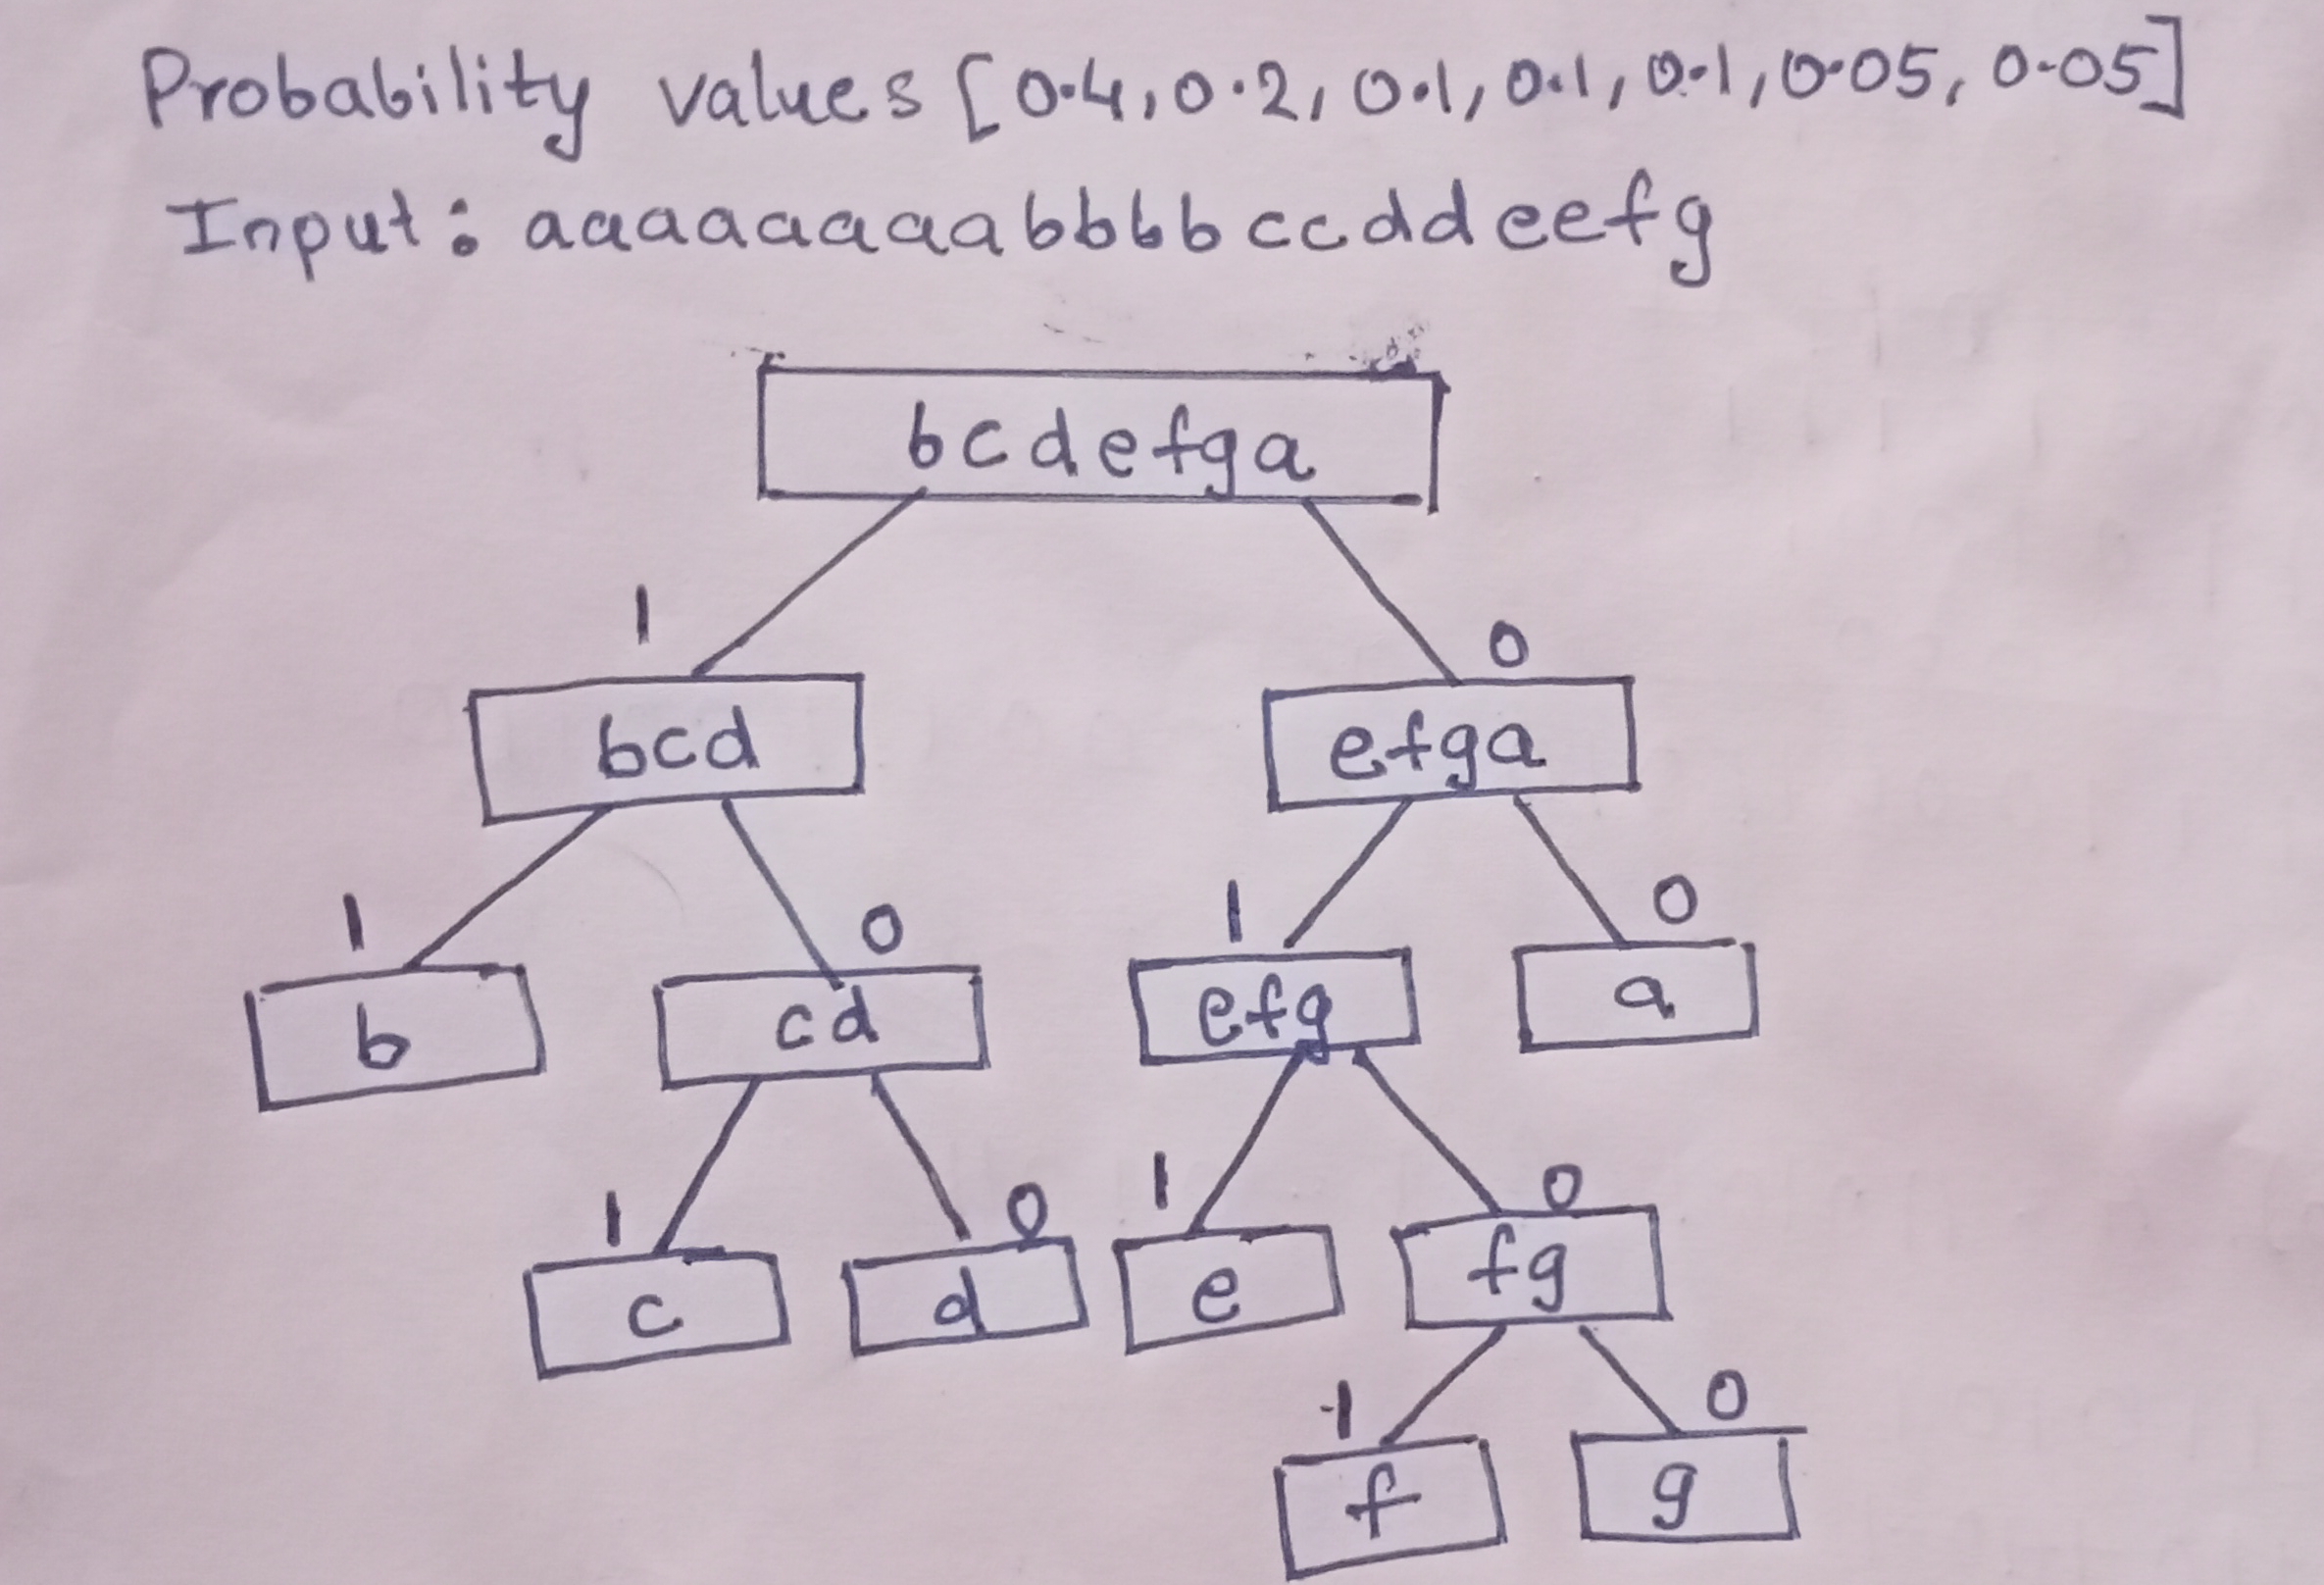 Probability values [0.4, 0.2, 0.1, 0.1, 0.1, 0.05, 0.05]
Input: aaaaaaaabbbbccddeefg
bcdefga
1 0
bcd efga
1 0 1 0
b cd efg a
1 0 1 0
c d e fg
1 0
f g